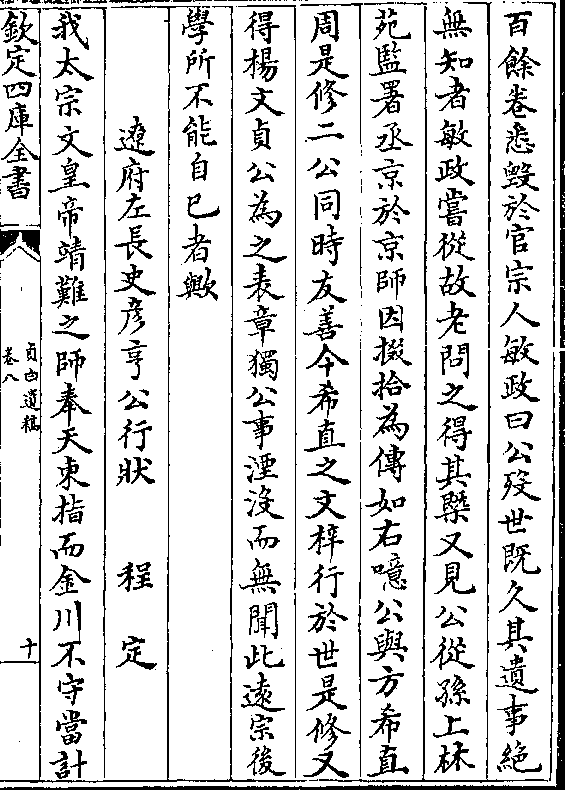 百餘卷悉毀於官宗人敏政曰公歿世既久其遺事絶
無知者敏政嘗從故老問之得其槩又見公從孫上林
苑監署丞京於京師因掇拾為傳如右噫公與方希直
周是修二公同時友善今希直之文梓行於世是修又
得楊文貞公為之表章獨公事湮沒而無聞此遠宗後
學所不能自已者歟
遼府左長史彦亨公行狀　程定
我太宗文皇帝靖難之師奉天東指而金川不守當計
欽定四庫全書
貞白遺稿
卷八
十